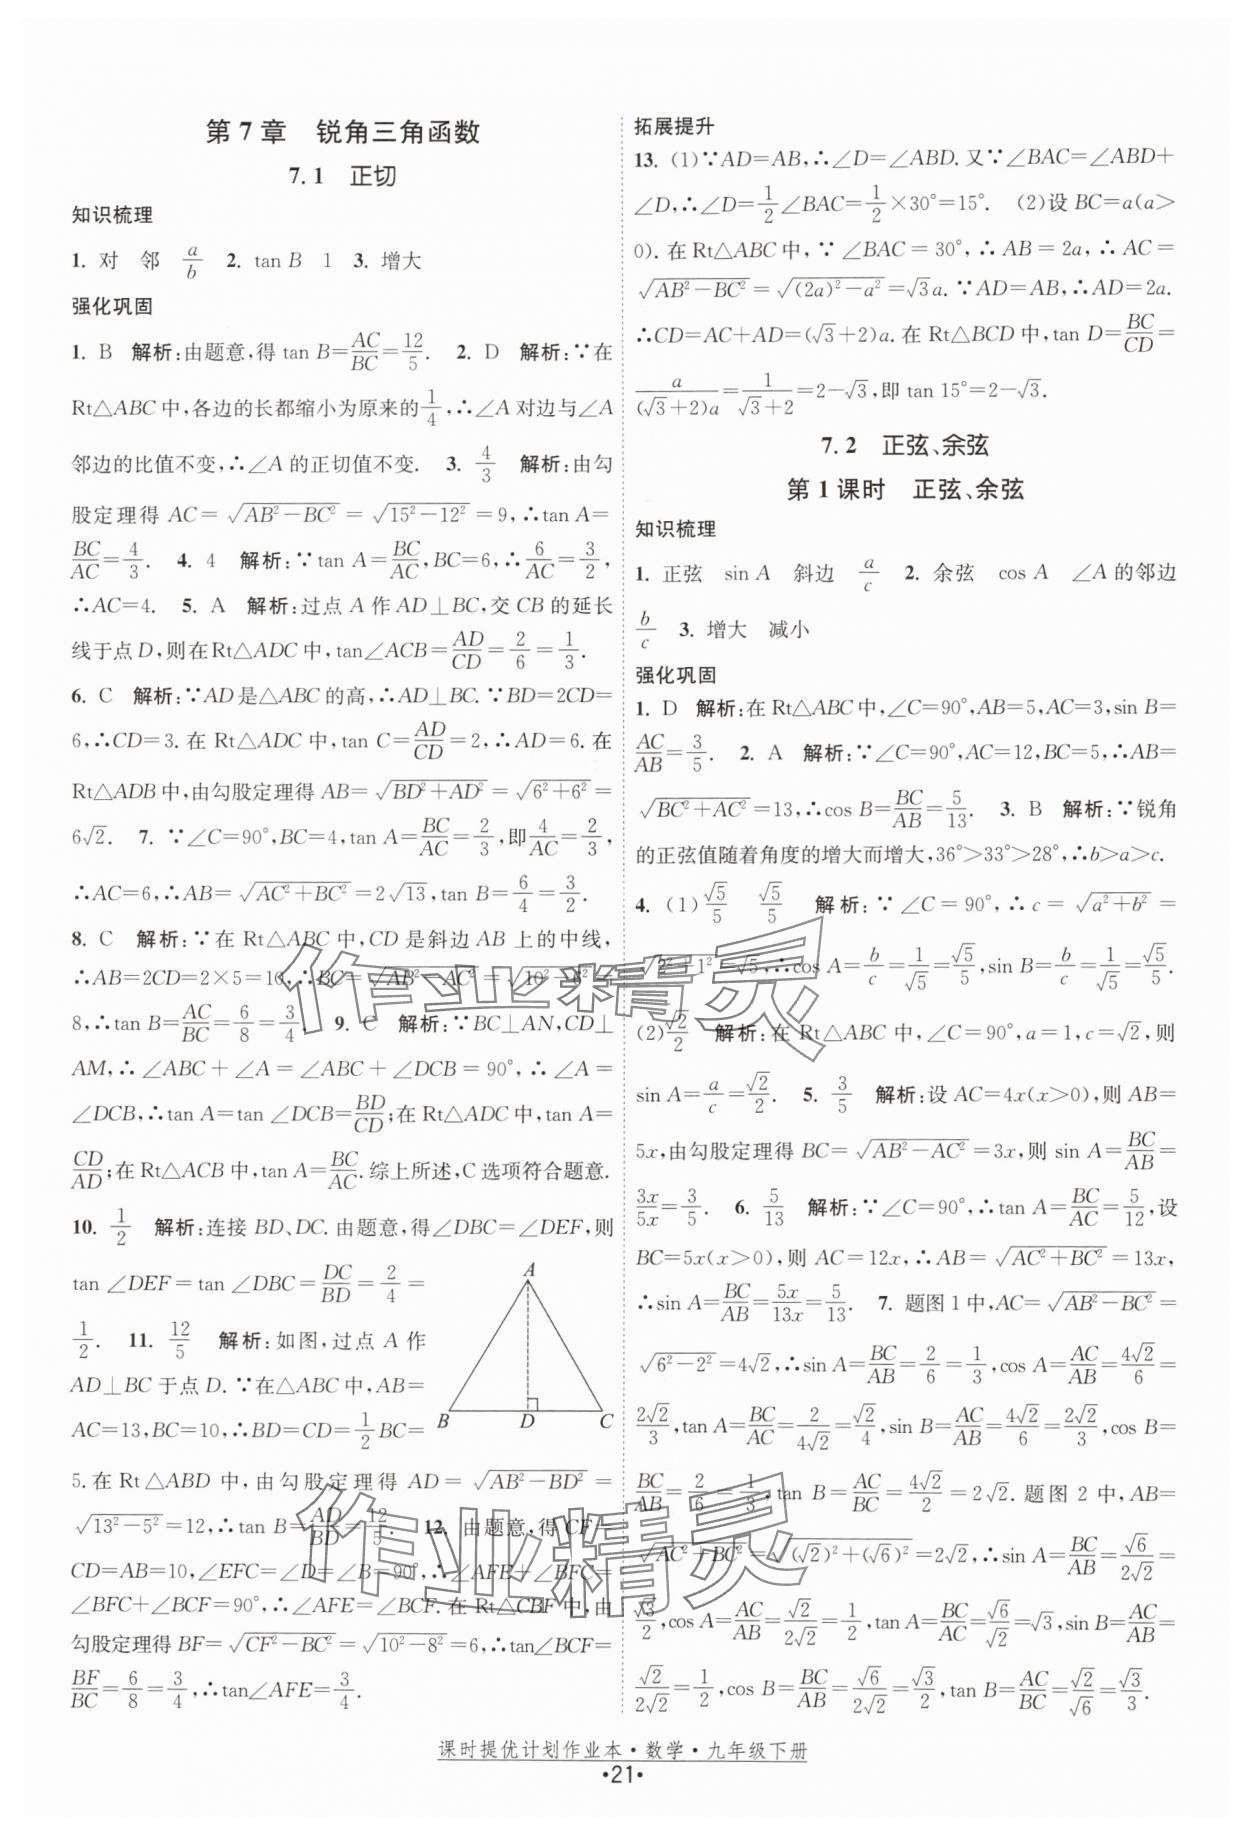 第7章 锐角三角函数
7.1 正切
知识梳理
1. 对 邻 a/b 2. tan B 1 3. 增大
强化巩固
1. B 解析:由题意,得 tan B=AC/BC=12/5. 2. D 解析:∵在
Rt△ABC 中,各边的长都缩小为原来的1/4,∴∠A 对边与∠A
邻边的比值不变,∴∠A 的正切值不变. 3. 4/3 解析:由勾
股定理得 AC=√(AB²-BC²)=√(15²-12²)=9,∴tan A=
BC/AC=4/3. 4. 4 解析:∵tan A=BC/AC,BC=6,∴6/AC=3/2,
∴AC=4. 5. A 解析:过点 A 作 AD⊥BC,交 CB 的延长
线于点 D,则在Rt△ADC 中,tan∠ACB=AD/CD=2/6=1/3.
6. C 解析:∵AD是△ABC的高,∴AD⊥BC.∵BD=2CD=
6,∴CD=3.在 Rt△ADC 中,tan C=AD/CD=2,∴AD=6.在
Rt△ADB 中,由勾股定理得 AB=√(BD²+AD²)=√(6²+6²)=
6√2. 7. ∵∠C=90°,BC=4,tan A=BC/AC=2/3,即4/AC=2/3,
∴AC=6,∴AB=√(AC²+BC²)=2√13,tan B=6/4=3/2.
8. C 解析:∵在 Rt△ABC 中,CD 是斜边 AB 上的中线,
∴AB=2CD=2×5=10,∴BC=√(AB²-AC²)=√(10²-6²)=
8,∴tan B=AC/BC=6/8=3/4. 9. C 解析:∵BC⊥AN,CD⊥
AM,∴∠ABC+∠A=∠ABC+∠DCB=90°,∴∠A=
∠DCB,∴tan A=tan ∠DCB=BD/CD;在Rt△ADC 中,tan A=
CD/AD;在Rt△ACB 中,tan A=BC/AC.综上所述,C选项符合题意.
10. 1/2 解析:连接 BD、DC.由题意,得∠DBC=∠DEF,则
tan ∠DEF=tan ∠DBC=DC/BD=2/4=
1/2. 11. 12/5 解析:如图,过点 A 作
AD⊥BC 于点 D.∵在△ABC 中,AB=
AC=13,BC=10,∴BD=CD=1/2BC=
A
B D C
5.在 Rt△ABD 中,由勾股定理得 AD=√(AB²-BD²)=
√(13²-5²)=12,∴tan B=AD/BD=12/5. 12. 由题意,得 CF=
CD=AB=10,∠EFC=∠D=∠B=90°,∴∠AFE+
∠BFC+∠BCF=90°,∴∠AFE=∠BCF.在 Rt△CBF 中,由
勾股定理得 BF=√(CF²-BC²)=√(10²-8²)=6,∴tan∠BCF=
BF/BC=6/8=3/4,∴tan∠AFE=3/4.
拓展提升
13. (1)∵AD=AB,∴∠D=∠ABD.又∵∠BAC=∠ABD+
∠D,∴∠D=1/2∠BAC=1/2×30°=15°. (2)设 BC=a(a>
0).在 Rt△ABC 中,∵∠BAC=30°,∴AB=2a,∴AC=
√(AB²-BC²)=√((2a)²-a²)=√3a.∵AD=AB,∴AD=2a.
∴CD=AC+AD=(√3+2)a.在 Rt△BCD 中,tan D=BC/CD=
a/((√3+2)a)=1/(√3+2)=2-√3,即 tan 15°=2-√3.
7.2 正弦、余弦
第1课时 正弦、余弦
知识梳理
1. 正弦 sin A 斜边 a/c 2. 余弦 cos A ∠A的邻边
b/c 3. 增大 减小
强化巩固
1. D 解析:在Rt△ABC中,∠C=90°,AB=5,AC=3,sin B=
AC/AB=3/5. 2. A 解析:∵∠C=90°,AC=12,BC=5,∴AB=
√(BC²+AC²)=13,∴cos B=BC/AB=5/13. 3. B 解析:∵锐角
的正弦值随着角度的增大而增大,36°>33°>28°,∴b>a>c.
4. (1)√5/5 √5/5 解析:∵∠C=90°,∴c=√(a²+b²)=
√(2²+1²)=√5,∴cos A=b/c=1/√5=√5/5,sin B=b/c=1/√5=√5/5.
(2)√2/2 解析:在 Rt△ABC 中,∠C=90°,a=1,c=√2,则
sin A=a/c=√2/2. 5. 3/5 解析:设 AC=4x(x>0),则 AB=
5x,由勾股定理得 BC=√(AB²-AC²)=3x,则 sin A=BC/AB=
3x/5x=3/5. 6. 5/13 解析:∵∠C=90°,∴tan A=BC/AC=5/12,设
BC=5x(x>0),则 AC=12x,∴AB=√(AC²+BC²)=13x,
∴sin A=BC/AB=5x/13x=5/13. 7. 题图1中,AC=√(AB²-BC²)=
√(6²-2²)=4√2,∴sin A=BC/AB=2/6=1/3,cos A=AC/AB=4√2/6=
2√2/3,tan A=BC/AC=2/4√2=√2/4,sin B=AC/AB=4√2/6=2√2/3,cos B=
BC/AB=2/6=1/3,tan B=AC/BC=4√2/2=2√2.题图2中,AB=
√(AC²+BC²)=√((√2)²+(√6)²)=2√2,∴sin A=BC/AB=√6/2√2=
√3/2,cos A=AC/AB=√2/2√2=1/2,tan A=BC/AC=√6/√2=√3,sin B=AC/AB=
√2/2√2=1/2,cos B=BC/AB=√6/2√2=√3/2,tan B=AC/BC=√2/√6=√3/3.
作业精灵
作业精灵
课时提优计划作业本·数学·九年级下册
·21·